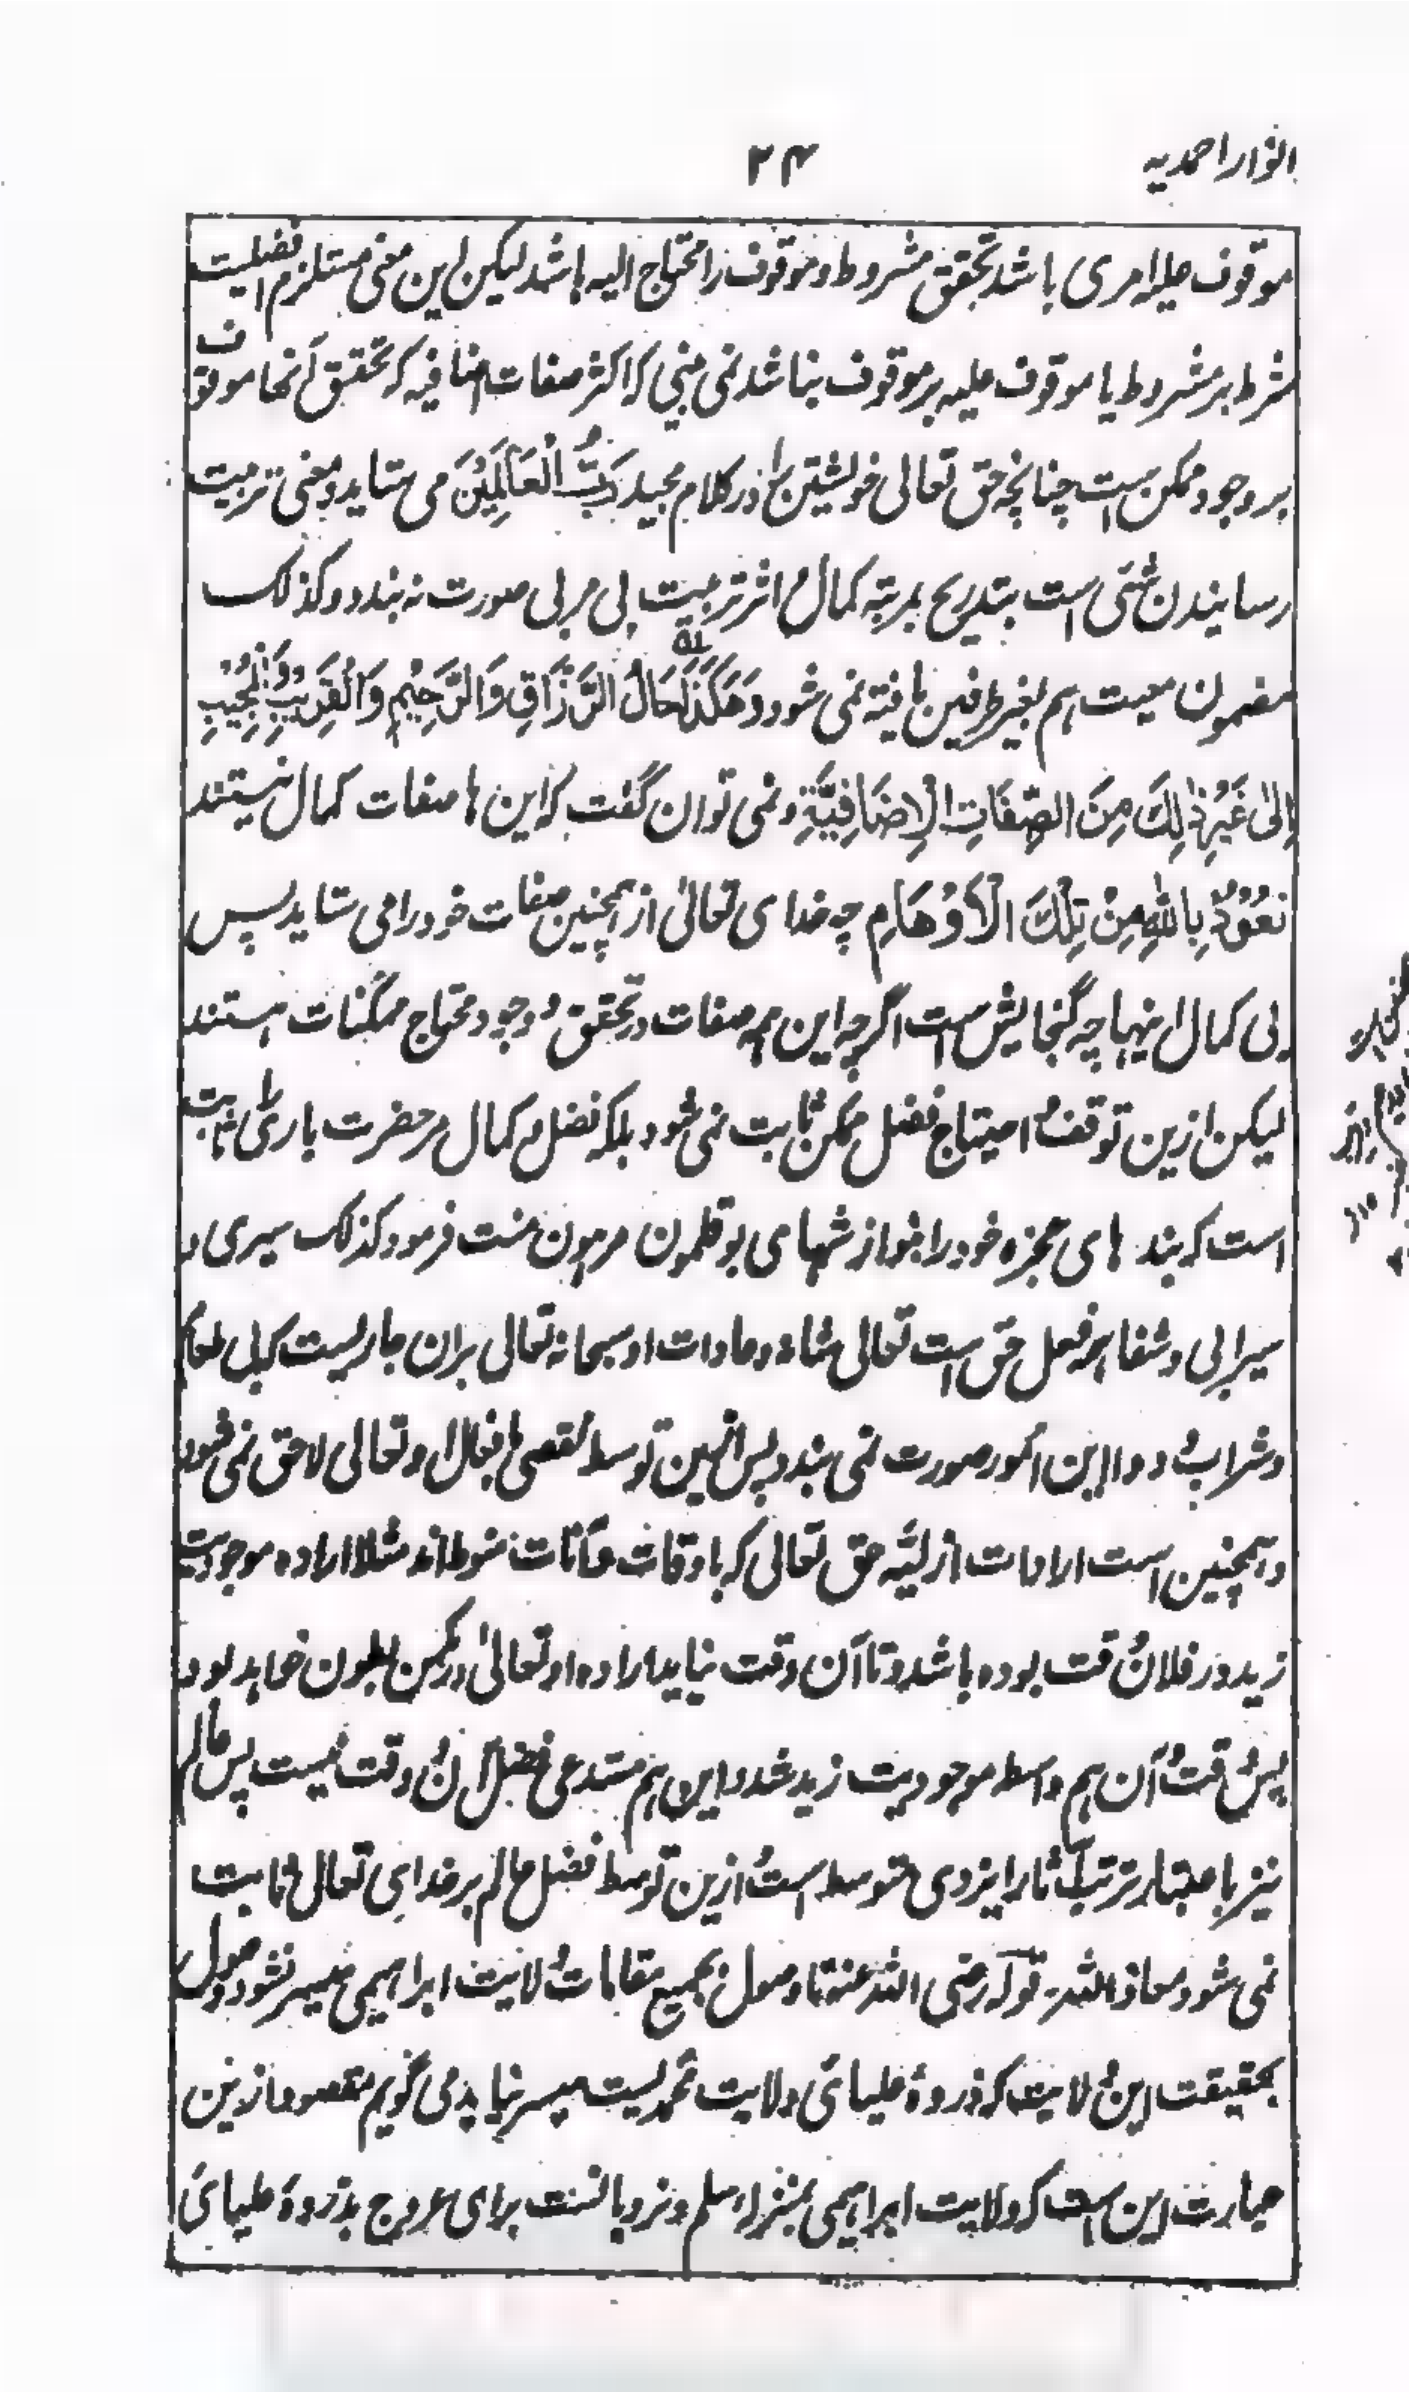 انوار احمدیہ
۲۴
موقوف علیہ امری باشد تحقق مشروط و موقوف را محتاج الیہ باشد لیکن این معنی مستلزم افضلیت
شرط بر مشروط یا موقوف علیہ بر موقوف بناشد نمی بینی کہ اکثر صفات اضافیہ کہ تحقق آنہا موقوف
بر وجود ممکن ست چنانچہ حق تعالی خویشتن را در کلام مجید رَبُّ الْعَالَمِیْنَ می ستاید و معنی تربیت
رسانیدن شئی است بتدریج بمرتبہ کمال و اثر تربیت بی مربی صورت نہ بندد و کذلک
مضمون معیت ہم بغیر طرفین یافتہ نمی شود وَهَكَذَا حَالُ الرَّزَّاقِ وَالرَّحِیْمِ وَالْقَرِیْبِ وَالْمُجِیْبِ
اِلٰی غَیْرِ ذٰلِكَ مِنَ الصِّفَاتِ الْاِضَافِیَّةِ و نمی توان گفت کہ این ہا صفات کمال نیستند
نَعُوْذُ بِاللّٰهِ مِنْ تِلْكَ الْاَوْهَامِ چہ خدای تعالیٰ از ہمچنین صفات خود را می ستاید پس
بی کمال اینہا چہ گنجایش ست اگرچہ این ہمہ صفات در تحقق و وجود محتاج ممکنات ہستند
لیکن ازین توقف و احتیاج فضل ممکن ثابت نمی شود بلکہ فضل و کمال مر حضرت باری را ثابت
است کہ بند ہای عجزہ خود را بنوازشہای بوقلمون مرہون منت فرمود کذلک سیری و
سیرابی و شفا ہر فعل حق است تعالی شانہ و عادات او سبحانہ تعالی بران جاریست کہ بی طعام
و شراب و دوا این امور صورت نمی بندد پس ازین توسط نقصی بافعال او تعالی لاحق نمی شود
و ہمچنین است ارادات ازلیہ حق تعالی کہ باوقات و آنات منوط اند مثلا ارادہ موجودیت
زید در فلان وقت بودہ باشد و تا آن وقت نیاید ارادہ او تعالیٰ در مکمن بطون خواہد بود
پس وقت و آن ہم واسطہ موجودیت زید شد و این ہم مستدعی فضل آن وقت نیست پس عالم
نیز باعتبار ترتب آثار ایزدی متوسط است و ازین توسط فضل عالم بر خدای تعالی ثابت
نمی شود معاذ اللہ قولہ رضی اللہ عنہ تا وصول بجمیع مقامات ولایت ابراہیمی میسر نشود وصول
بحقیقت این ولایت کہ ذروۂ علیای ولایت محمدیست میسر نیاید می گویم مقصود ازین
عبارت این ست کہ ولایت ابراہیمی بمنزلہ سلم و نردبانست برای عروج بذروۂ علیای